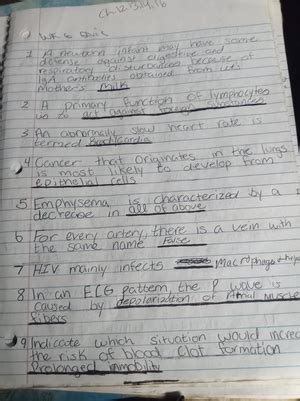 Ch 12, 13, 14, 16
WK 6 Quiz
1 A newborn infant may have some
defense against digestive and
respiratory disturbances because of
IgA antibodies obtained from
Mother's milk
2 A primary function of lymphocytes
is to act against foreign
3 An abnormally slow heart rate is
termed Bradicardia
4 Cancer that originates in the lungs
is most likely to develop from
epithelial cells
5 Emphysema is characterized by a
decrease in all of above
6 For every artery there is a vein with
the same name False
7 HIV mainly infects Macrophage
8 In an ECG pattern, the P wave is
caused by depolarization of Atrial muscle
fibers
9 Indicate which situation would increa
the risk of blood clot formation
Prolonged immobility